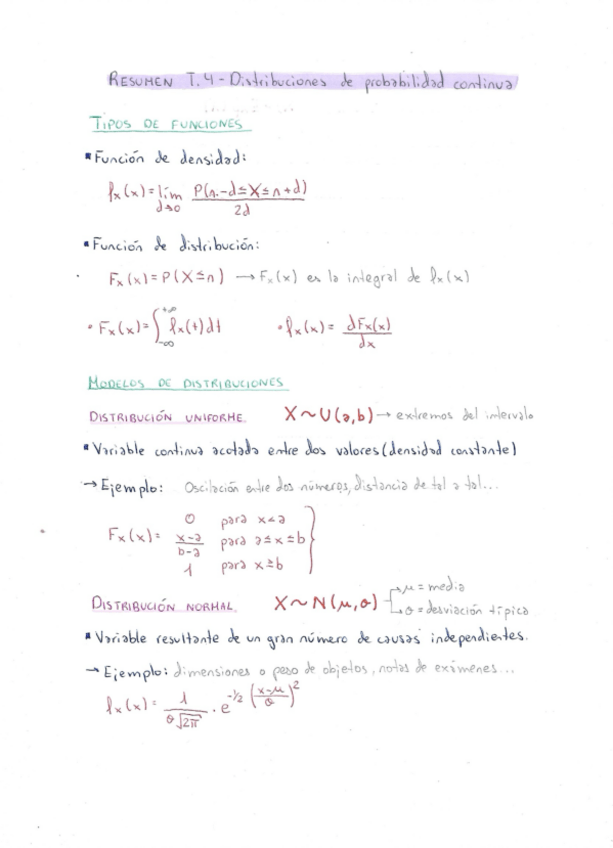 RESUMEN T.4 - Distribuciones de probabilidad continua
TIPOS DE FUNCIONES
▪ Función de densidad:
fx(x) = lím d→0 P(n-d≤X≤n+d) / 2d
▪ Función de distribución:
Fx(x) = P(X≤n) → Fx(x) es la integral de fx(x)
• Fx(x) = ∫_{-∞}^{+∞} fx(t)dt • fx(x) = dFx(x) / dx
MODELOS DE DISTRIBUCIONES
DISTRIBUCIÓN UNIFORME. X~U(a,b) → extremos del intervalo
▪ Variable continua acotada entre dos valores (densidad constante)
→ Ejemplo: Oscilación entre dos números, distancia de tal a tal...
0 para x<a
Fx(x) = x-a / b-a para a≤x≤b }
1 para x≥b
DISTRIBUCIÓN NORMAL. X~N(μ,σ) → μ = media
→ σ = desviación típica
▪ Variable resultante de un gran número de causas independientes.
→ Ejemplo: dimensiones o peso de objetos, notas de exámenes...
fx(x) = 1 / σ√2π · e^{-1/2 (x-μ / σ)^2}